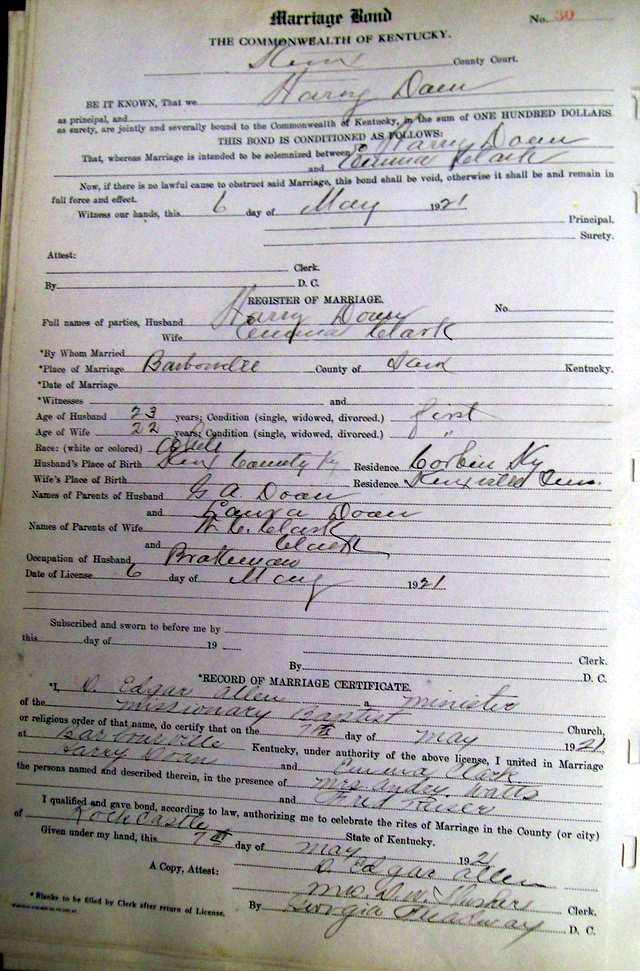 Marriage Bond
No. 30
THE COMMONWEALTH OF KENTUCKY.
County Court.
BE IT KNOWN, That we Harry Doan
as principal, and
as surety, are jointly and severally bound to the Commonwealth of Kentucky, in the sum of ONE HUNDRED DOLLARS
THIS BOND IS CONDITIONED AS FOLLOWS:
That, whereas Marriage is intended to be solemnized between Harry Doan
and Emma Clark
Now, if there is no lawful cause to obstruct said Marriage, this bond shall be void, otherwise it shall be and remain in
full force and effect.
Witness our hands, this 6 day of May 1921
Principal.
Surety.
Attest:
Clerk.
By D. C.
REGISTER OF MARRIAGE.
Full names of parties, Husband Harry Doan No.
Wife Emma Clark
*By Whom Married
*Place of Marriage Barbourville County of Knox Kentucky.
*Date of Marriage
*Witnesses and
Age of Husband 23 years; Condition (single, widowed, divorced.) first
Age of Wife 22 years; Condition (single, widowed, divorced.) "
Race: (white or colored) white
Husband's Place of Birth Knox County Ky Residence Corbin Ky
Wife's Place of Birth Residence
Names of Parents of Husband G. A. Doan
and Laura Doan
Names of Parents of Wife Clark
and Clark
Occupation of Husband Brakeman
Date of License 6 day of May 1921
Subscribed and sworn to before me by
this day of 19
Clerk.
By D. C.
*RECORD OF MARRIAGE CERTIFICATE.
*I, D. Edgar Allen a minister
of the missionary Baptist Church,
or religious order of that name, do certify that on the 7th day of May 1921
at Barbourville Kentucky, under authority of the above license, I united in Marriage
Harry Doan and Emma Clark
the persons named and described therein, in the presence of Mrs Watts
and Fred
I qualified and gave bond, according to law, authorizing me to celebrate the rites of Marriage in the County (or city)
of Rockcastle State of Kentucky.
Given under my hand, this 7th day of may 1921
D. Edgar Allen
A Copy, Attest: Mrs. D. W. Clerk.
*Blanks to be filed by Clerk after return of License.
By Georgia Treadway D. C.